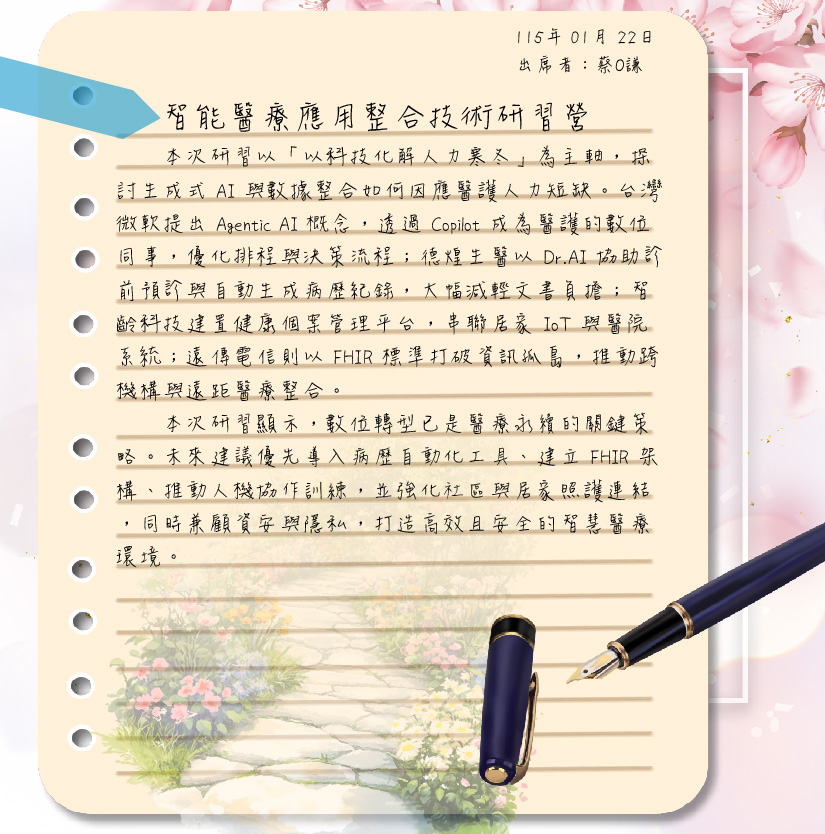 115年 01月 22日
出席者：蔡O謙
智能醫療應用整合技術研習營
本次研習以「以科技化解人力寒冬」為主軸，探
討生成式 AI 與數據整合如何因應醫護人力短缺。台灣
微軟提出 Agentic AI 概念，透過 Copilot 成為醫護的數位
同事，優化排程與決策流程；德煌生醫以 Dr.AI 協助診
前預診與自動生成病歷紀錄，大幅減輕文書負擔；智
齡科技建置健康個案管理平台，串聯居家 IoT 與醫院
系統；遠傳電信則以 FHIR 標準打破資訊孤島，推動跨
機構與遠距醫療整合。
本次研習顯示，數位轉型已是醫療永續的關鍵策
略。未來建議優先導入病歷自動化工具、建立 FHIR 架
構、推動人機協作訓練，並強化社區與居家照護連結
，同時兼顧資安與隱私，打造高效且安全的智慧醫療
環境。